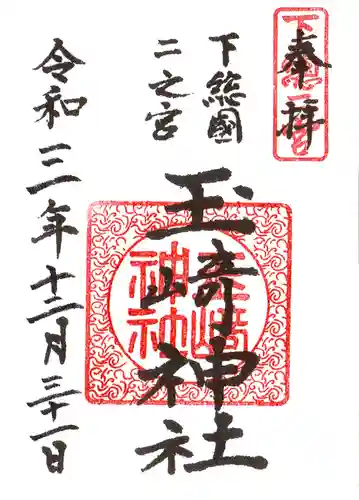 奉拝
下総國
二之宮
玉﨑神社
令和三年十二月三十一日